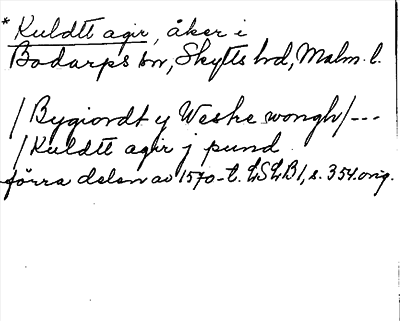 * Kuldtt agir, åker i
Bodarps sn, Skytts hd, Malm. l.
/ Bygiordt y Weske wongh / ---
/ Kuldtt agir j pund
förra delen av 1570-t. LSLB1, s. 354. orig.